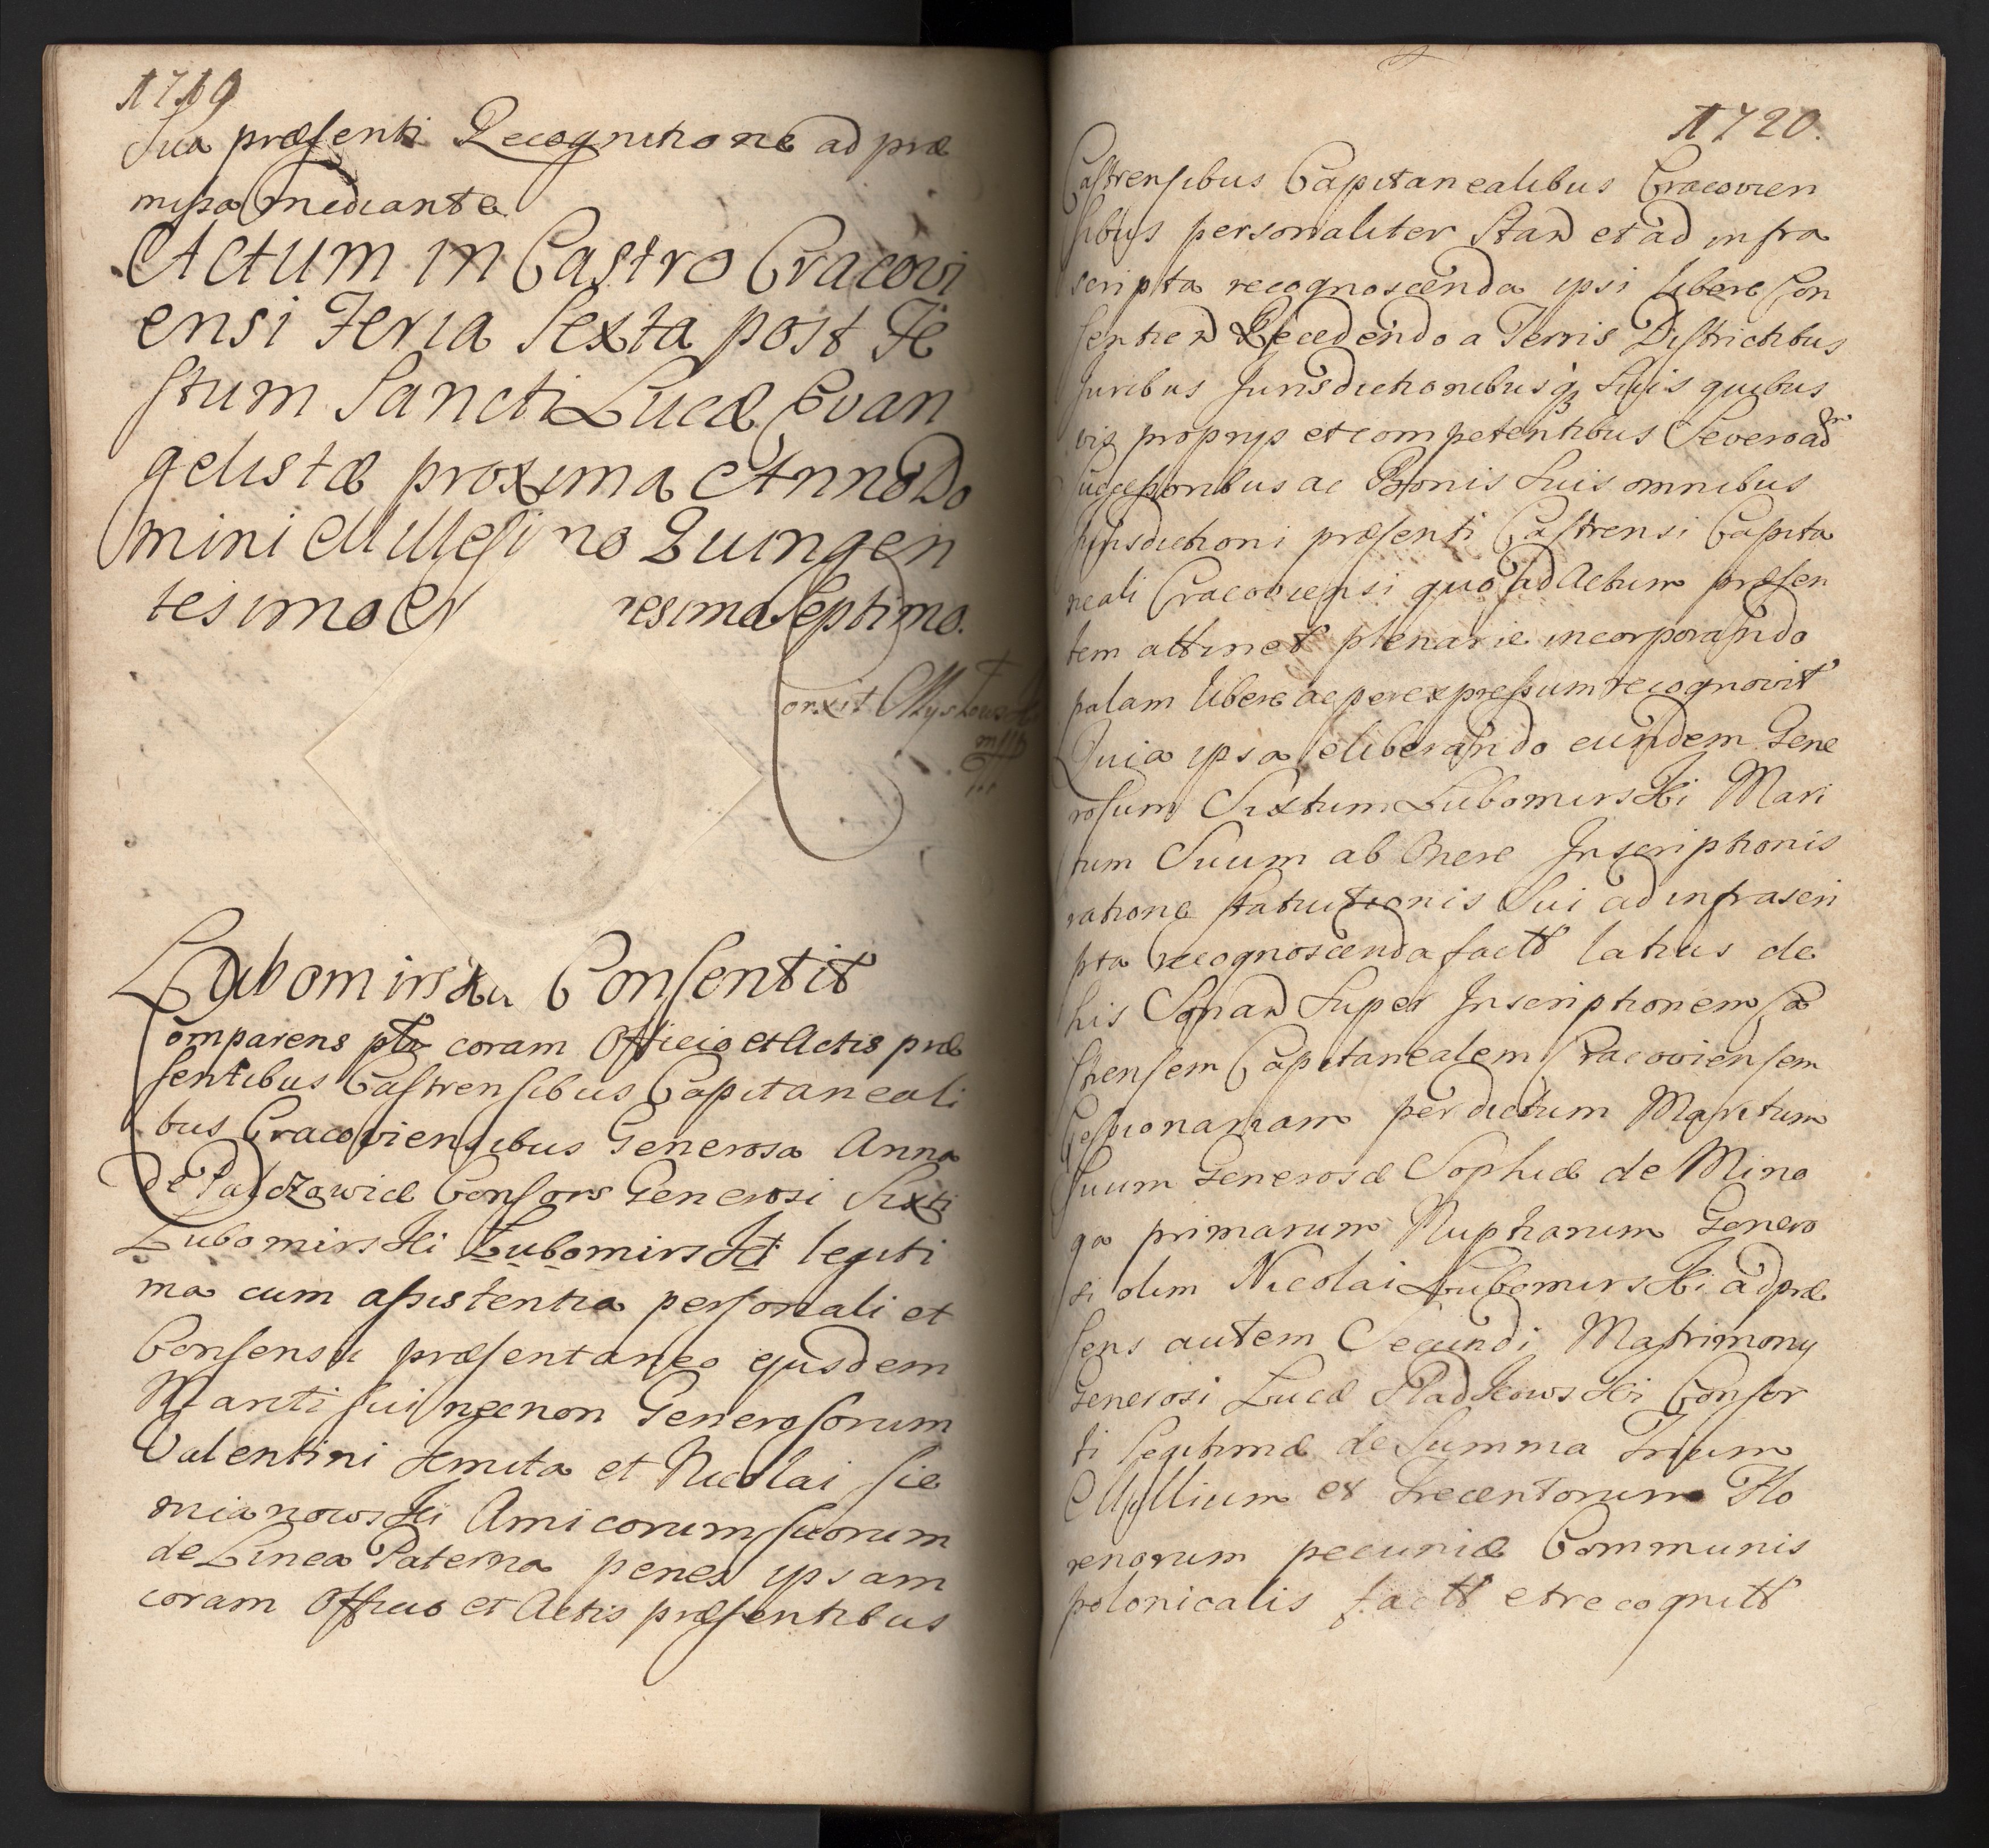 1719
Sua præsenti Recognitione ad præ
missa mediante
Actum in Castro Cracovi
ensi Feria Sexta post Fe
stum Sancti Lucæ Evan
gelistæ proxima Anno Do
mini Millesimo Quingen
tesimo resimo Septimo.
Lubomirska Consentit
Comparens pltr coram Officio et Actis præ
sentibus Castrensibus Capitaneali
bus Cracoviensibus Generosa Anna
de Palczowicæ Consors Generosi Sixti
Lubomirski Lubomirski legiti
ma cum assistentia personali et
Consensu præsentaneo ejusdem
Mariti sui necnon Generosorum
Valentini Kmita et Nicolai Sie
mianowski Amicorum suorum
de Linea Paterna penes ipsam
coram Officio et Actis præsentibus
1720.
Castrensibus Capitanealibus Cracovien
sibus personaliter Stan et ad infra
scripta recognoscenda ipsi libere Con
sentien Recedendo a Terris Districtibus
Juribus Jurisdictionibusq; Suis quibus
vis proprijs et competentibus Se vero ad
Successoribus ac Bonis Suis omnibus
Jurisdictioni præsenti Castrensi Capita
neali Cracoviensi quo ad Actum præsen
tem attinet plenarie incorporando
palam libere ac per expressum recognovit
Quia ipsa eliberando eundem Gene
rosum Sixtum Lubomirski Mari
tum Suum ab Onere Inscriptionis
ratione statuitionis Sui ad infrascri
pta recognoscenda factt latius de
his Sonan Super Inscriptionem Ca
strensem Capitanealem Cracoviensem
Cessionariam per dictum Maritum
Suum Generosæ Sophiæ de Mino
ga primarum Nuptiarum Genero
si olim Nicolai Lubomirski ad præ
sens autem Secundi Matrimonij
Generosi Lucæ Sladkowski Consor
ti legitimæ de Summa Trium
Millium et Trecentorum Flo
renorum pecuniæ Communis
polonicalis factt et recognitt